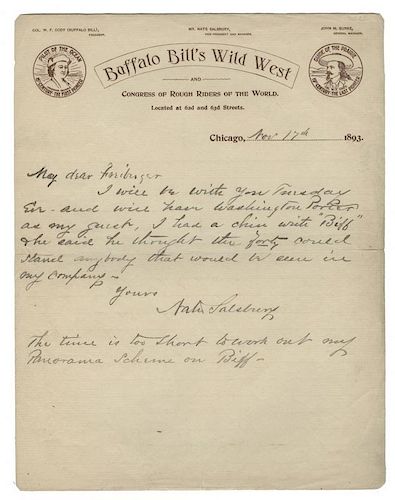 COL. W. F. CODY (BUFFALO BILL), PRESIDENT.
MR. NATE SALSBURY, VICE-PRESIDENT AND MANAGER.
JOHN M. BURKE, GENERAL MANAGER.
PILOT OF THE OCEAN 15TH CENTURY-THE FIRST PIONEER
GUIDE OF THE PRAIRIE 19TH CENTURY-THE LAST PIONEER
Buffalo Bill's Wild West
AND
CONGRESS OF ROUGH RIDERS OF THE WORLD.
Located at 62d and 63d Streets.
Chicago, Nov 17th 1893.
My dear
I will be with you Tuesday
Eve - and will have Washington Porter
as my guest, I had a chin with "Biff"
& he said he thought the forty could
stand anybody that would be seen in
my company -
Yours
Nate Salsbury
The time is too short to work out my
Panorama Scheme on Biff -